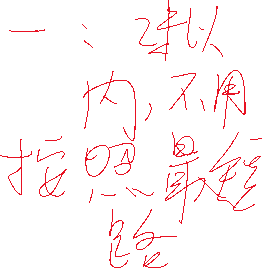 一：2米以
内，不用
按照最短
路